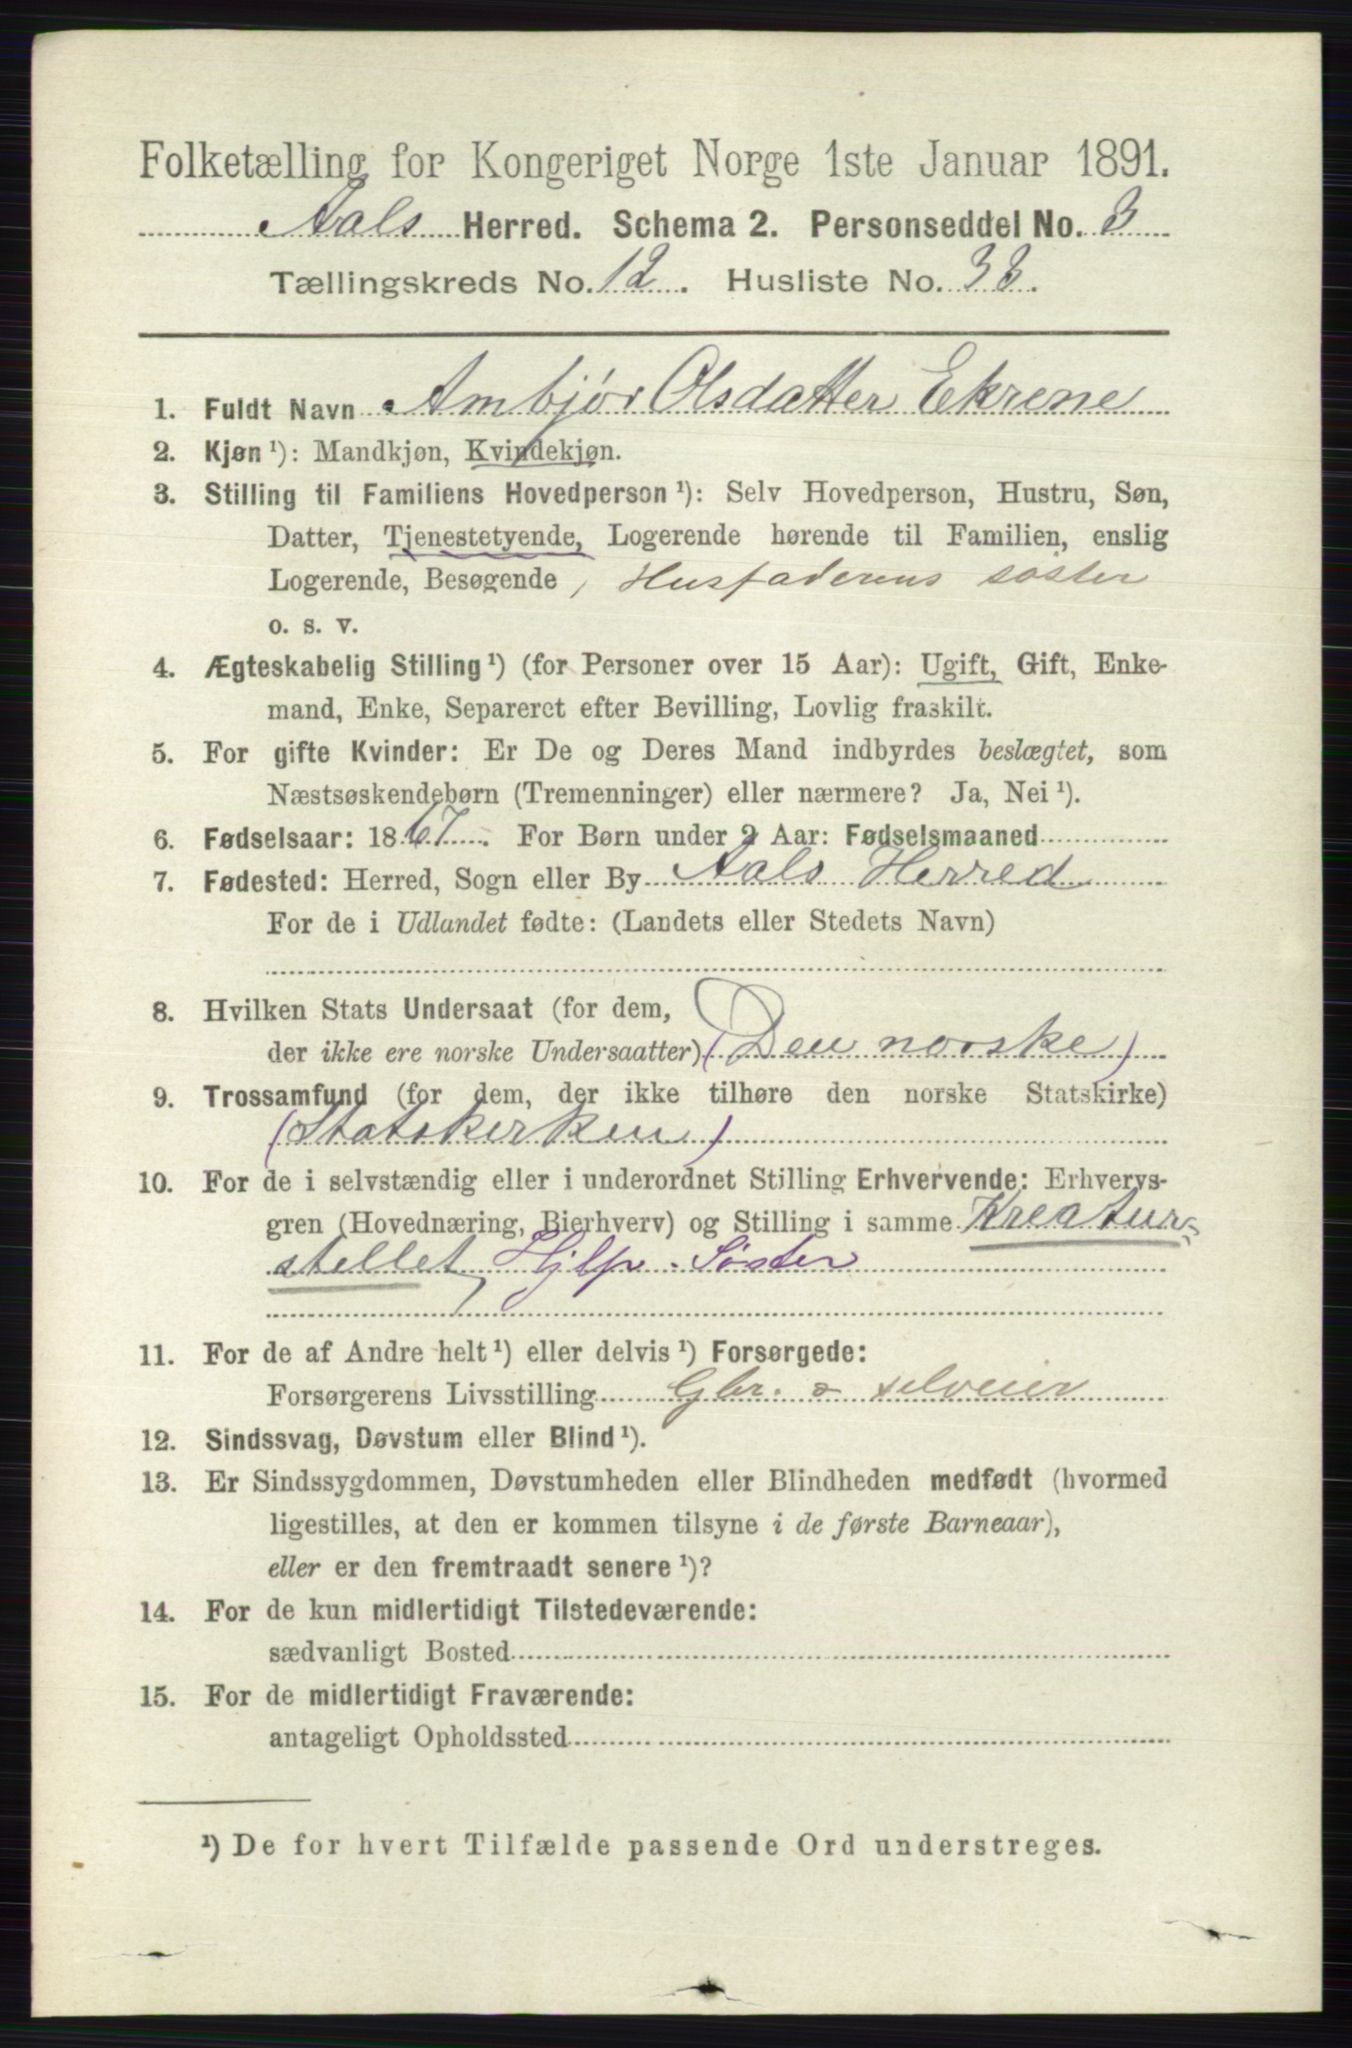 Folketælling for Kongeriget Norge 1ste Januar 1891.
Aals Herred. Schema 2. Personseddel No. 3
Tællingskreds No. 12. Husliste No. 33.
1. Fuldt Navn Ambjør Olsdatter Ekrene
2. Kjøn ¹): Mandkjøn, Kvindekjøn.
3. Stilling til Familiens Hovedperson ¹): Selv Hovedperson, Hustru, Søn,
Datter, Tjenestetyende, Logerende hørende til Familien, enslig
Logerende, Besøgende, Husfaderens søster
o. s. v.
4. Ægteskabelig Stilling ¹) (for Personer over 15 Aar): Ugift, Gift, Enke-
mand, Enke, Separeret efter Bevilling, Lovlig fraskilt.
5. For gifte Kvinder: Er De og Deres Mand indbyrdes beslægtet, som
Næstsøskendebørn (Tremenninger) eller nærmere? Ja, Nei ¹).
6. Fødselsaar: 1867. For Børn under 2 Aar: Fødselsmaaned
7. Fødested: Herred, Sogn eller By Aals Herred
For de i Udlandet fødte: (Landets eller Stedets Navn)
8. Hvilken Stats Undersaat (for dem,
der ikke ere norske Undersaatter) (Den norske)
9. Trossamfund (for dem, der ikke tilhøre den norske Statskirke)
(Statskerken)
10. For de i selvstændig eller i underordnet Stilling Erhvervende: Erhvervs-
gren (Hovednæring, Bierhverv) og Stilling i samme Kreatur-
stellet, Hjlp. Søster
11. For de af Andre helt ¹) eller delvis ¹) Forsørgede:
Forsørgerens Livsstilling Gbr. & selveier
12. Sindssvag, Døvstum eller Blind ¹).
13. Er Sindssygdommen, Døvstumheden eller Blindheden medfødt (hvormed
ligestilles, at den er kommen tilsyne i de første Barneaar),
eller er den fremtraadt senere ¹)?
14. For de kun midlertidigt Tilstedeværende:
sædvanligt Bosted
15. For de midlertidigt Fraværende:
antageligt Opholdssted
¹) De for hvert Tilfælde passende Ord understreges.